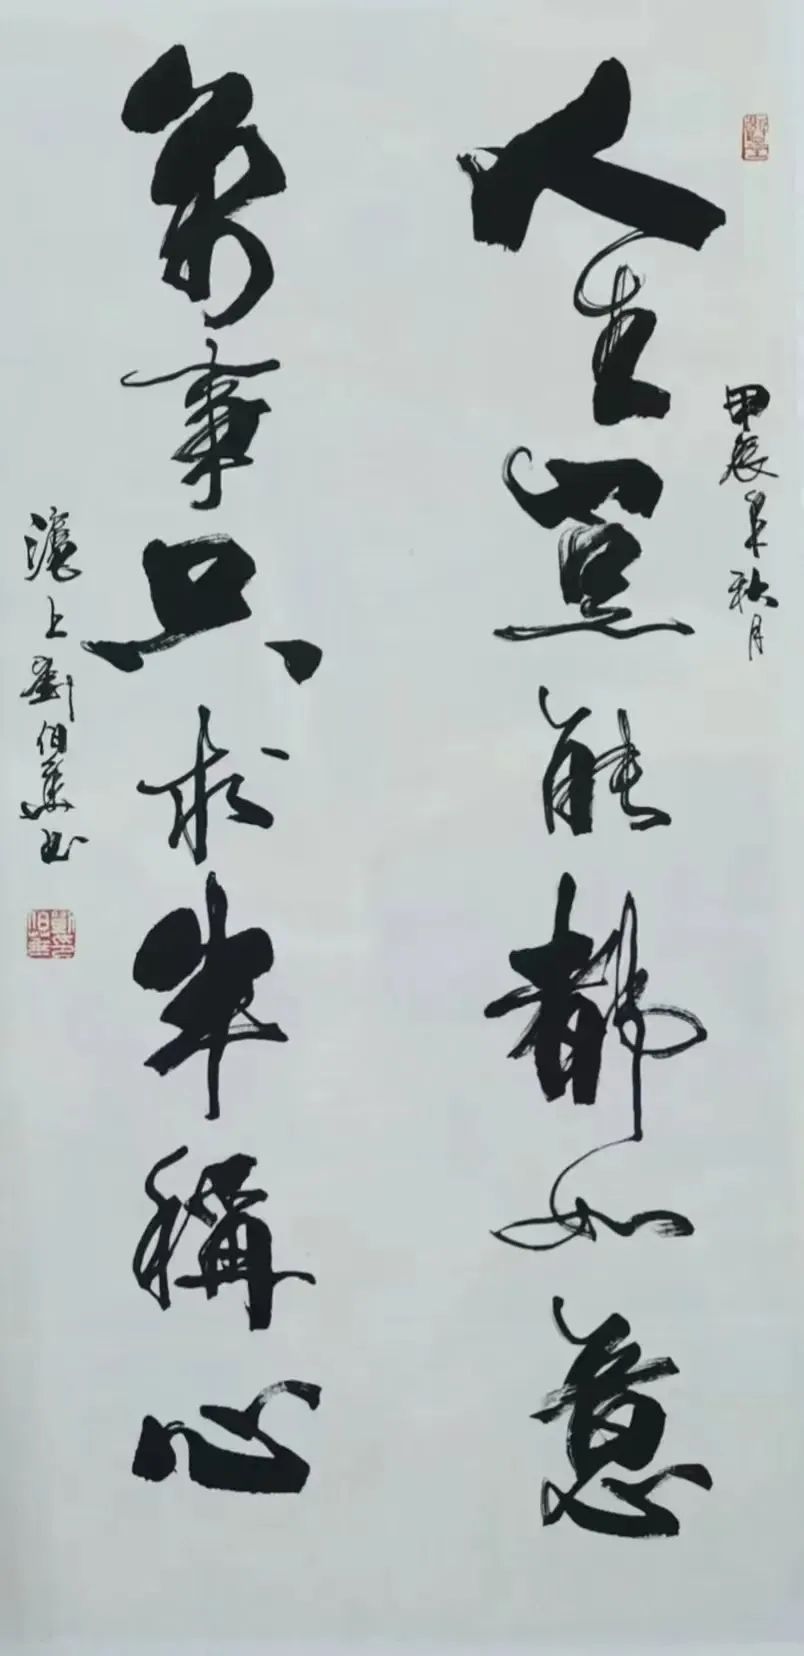 人生豈能都如意
甲辰年秋月
萬事只求半稱心
滬上劉伯華書